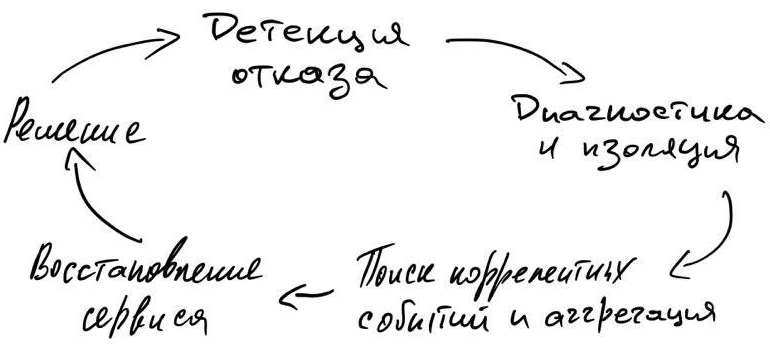 Детекция
отказа
Диагностика
и изоляция
Поиск коррелентных
событий и аггрегация
Восстановление
сервиса
Решение